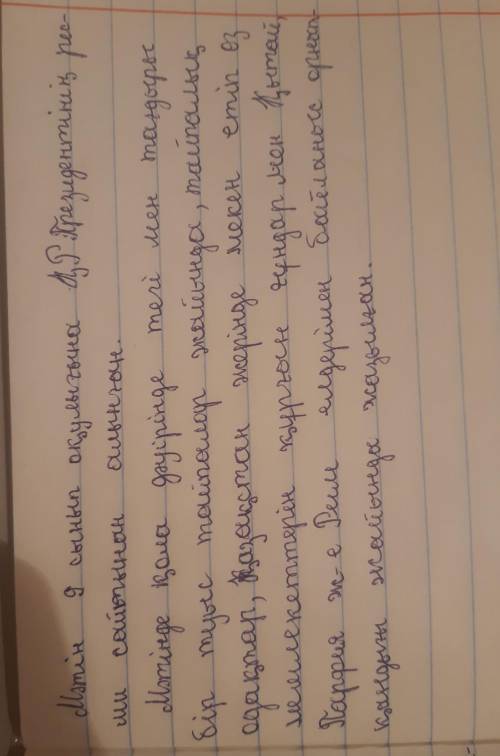 Мәтін 9 сынып оқулығына ҚР Президентінің рес-
ми сайтынан алынған.
Мәтінде қола дәуірінде тегі мен тағдыры
бір туыс тайпалар жайында, тайпалық
одақтар, Қазақстан жерінде мекен етіп өз
мемлекеттерін құрған ғұндар мен Қытай,
Парфия ж-е Рим елдерімен байланыс орнат-
қандығы жайында жазылған.